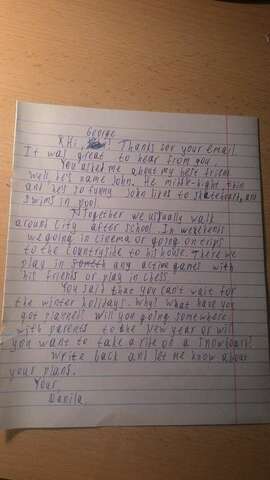 George
Hi, ! Thanks for your email
It was great to hear from you.
You asked me about my best friend
Well he's name John. He middle-hight, thin
and he's so funny John likes to skateboard, and
swims in pool.
Together we usually walk
around City after school. In weekends
we going in cinema or going on trips
to the countryside to his house. There we
play in any active games with
his friends or play in chess.
You said that you can't wait for
the winter holidays. Why? What have you
got planned? Will you going somewhere
with parents to the New year or will
you want to take a ride on a snowboard?
Write back and let me know about
your plans.
Your,
Danila